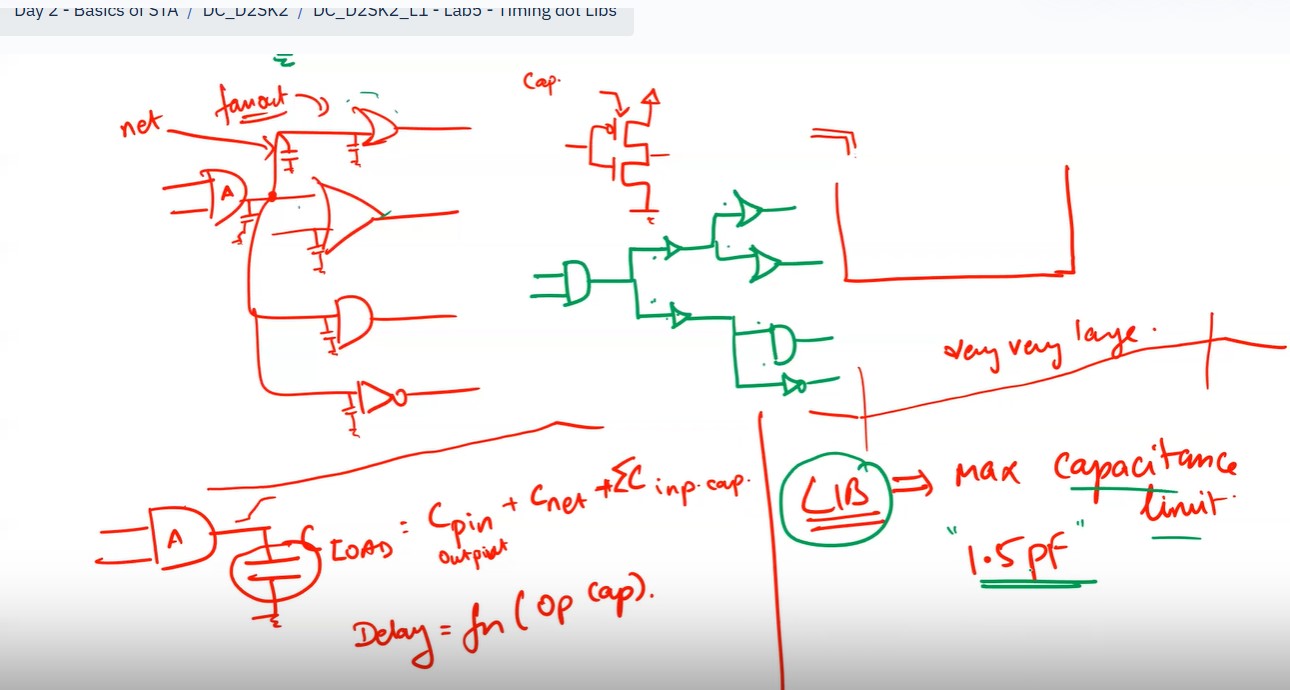 Day 2 - Basics of STA / DC_D2SK2 / DC_D2SK2_L1 - Lab5 - Timing dot Libs
fanout
net
A
Cap.
very very large.
A
CLOAD = Cpin output + Cnet + ΣC inp. cap.
Delay = fn (op cap).
LIB ⇒ max capacitance limit.
"1.5pf"